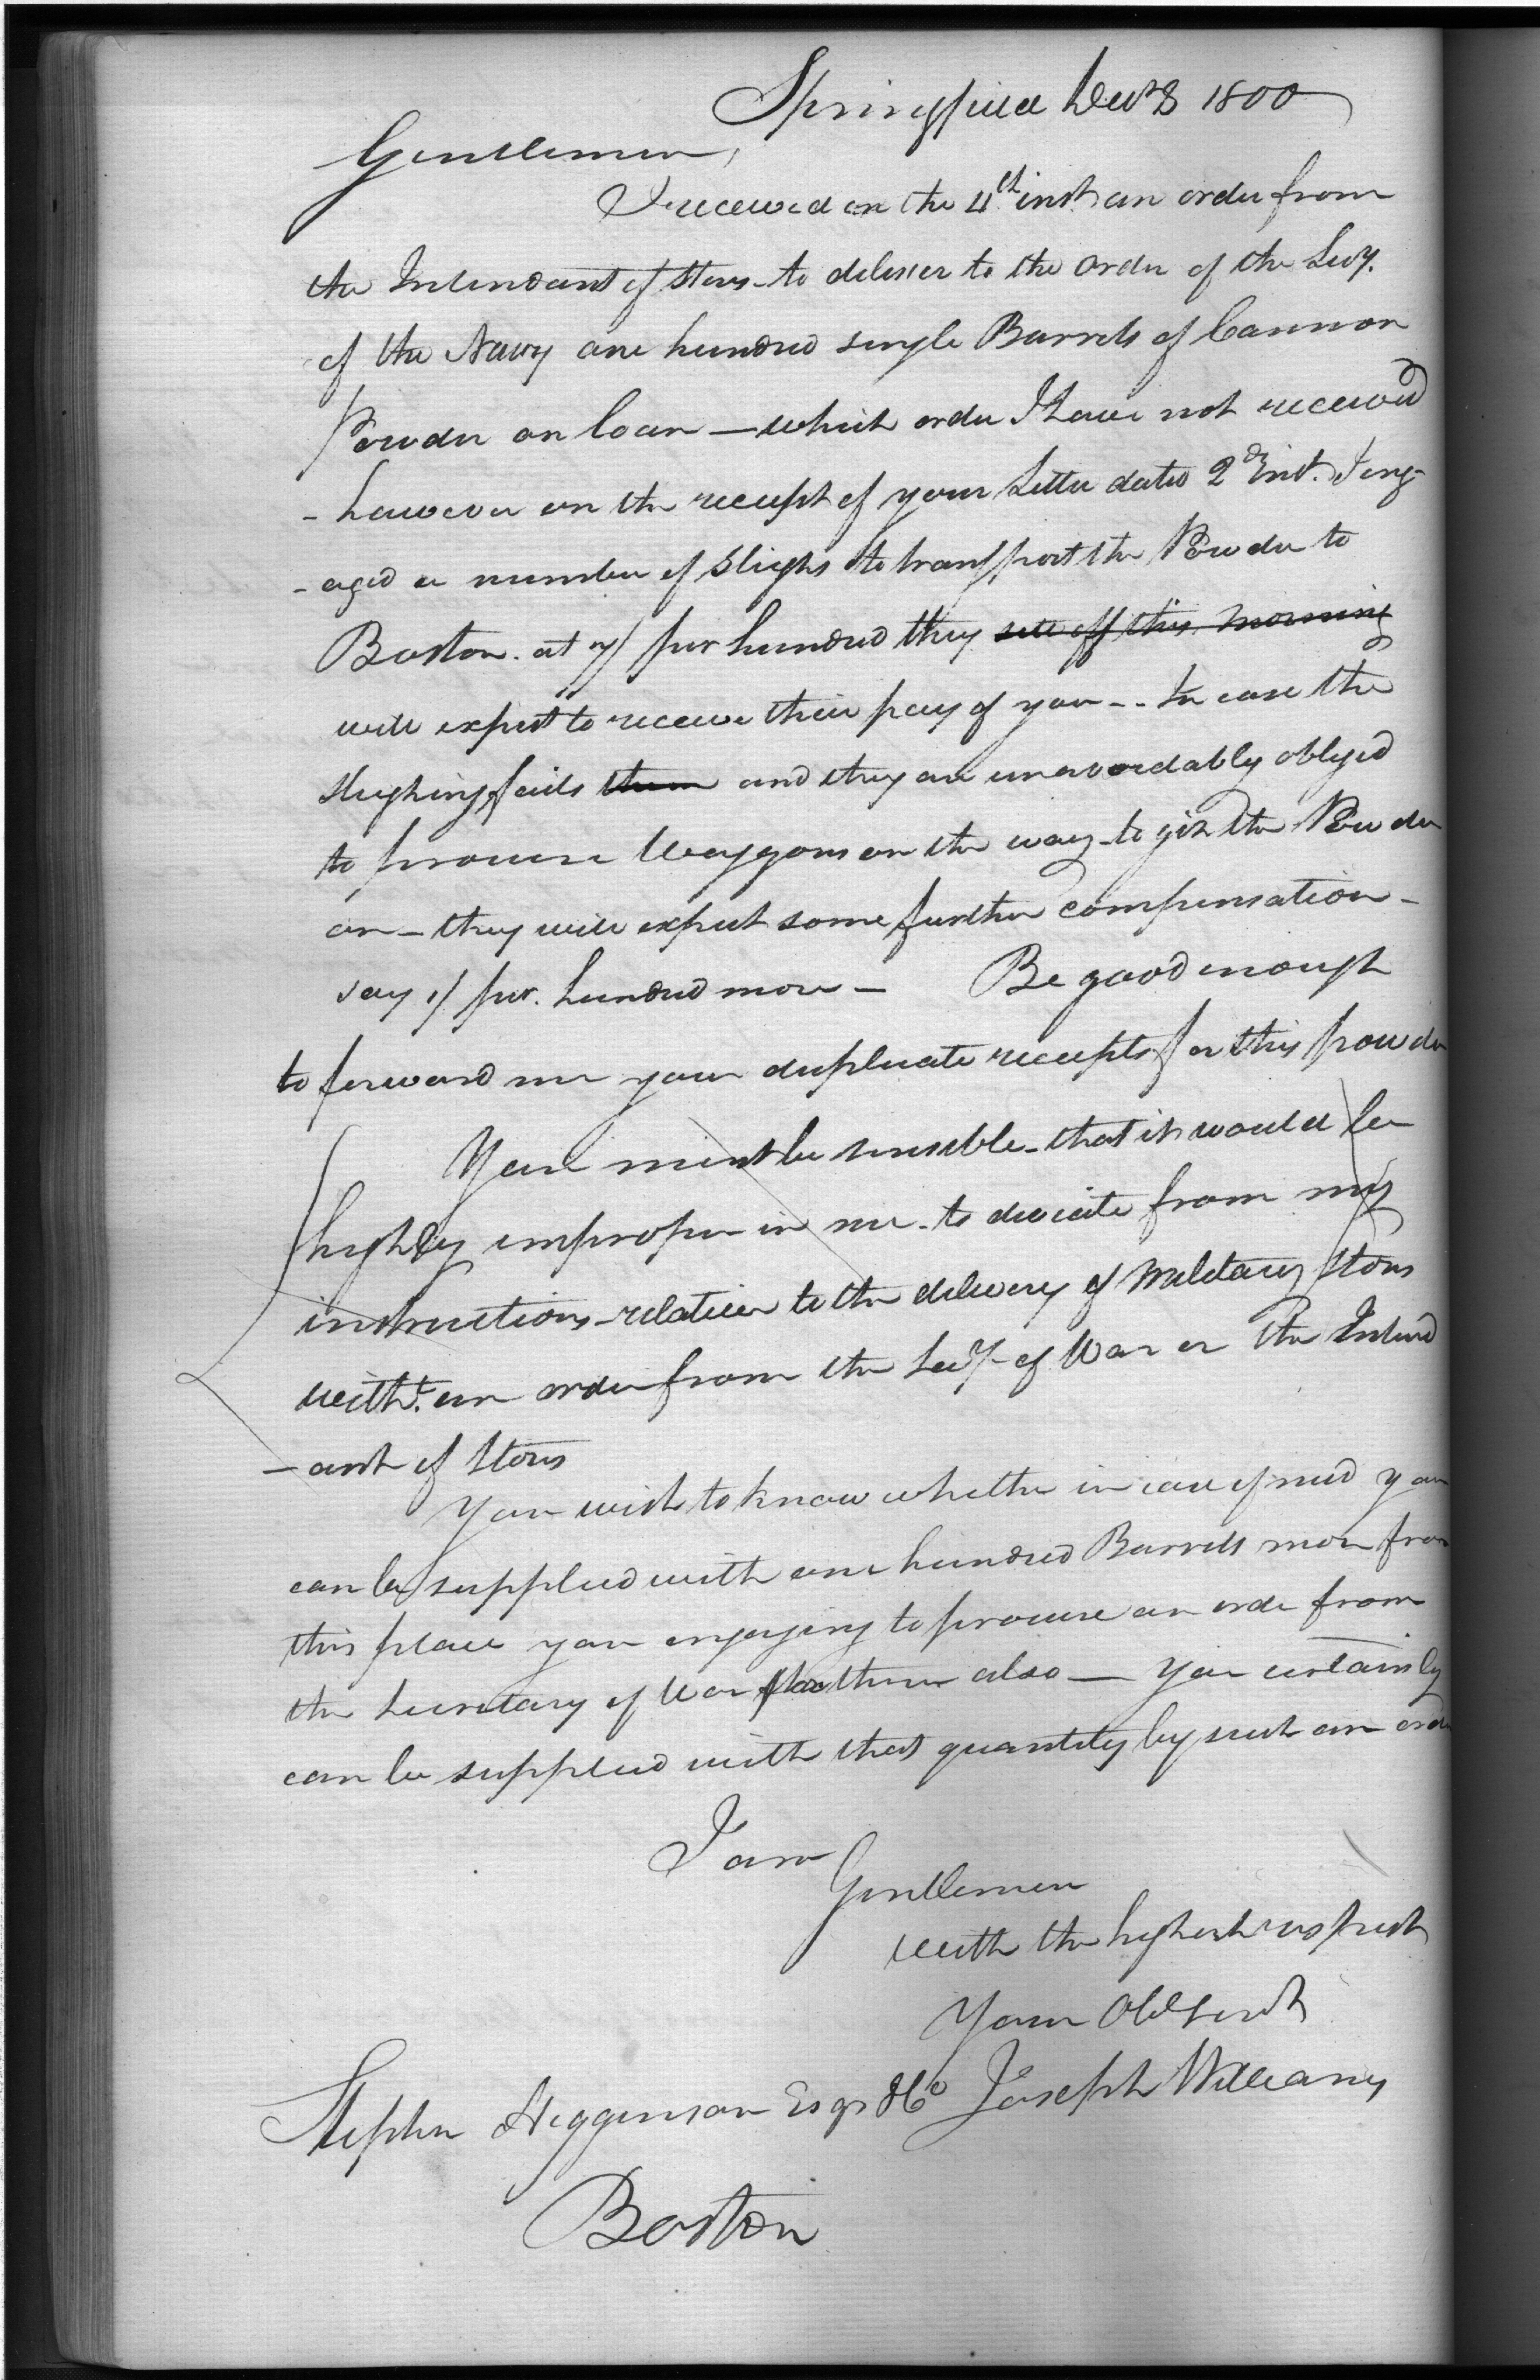 Springfield Decr 8 1800
Gentlemen,
I received on the 4th inst an order from
the Intendant of Stores - to deliver to the order of the Secy.
of the Navy one hundred single Barrels of Cannon
Powder on loan — which order I have not received
- however on the receipt of your Letter dated 2d Inst. I eng-
-aged a number of Sleighs to transport the Powder to
Boston. at 7/ per hundred they sett off this morning
will expect to receive their pay of you - - In case the
Sleighing fails them and they are unavoidably obliged
to procure Waggons on the way - to git the Powder
on - they will expect some further compensation -
say 1/ per. hundred more — Be good enough
to forward me your duplicate receipts for this powder
You must be sensible - that it would be
highly improper in me - to deviate from my
instructions - relative to the delivery of Military Stores
witht. an order from the Secy. of War or the Intend
- ant of Stores
You wish to know whether in case of need you
can be supplied with one hundred Barrels more from
this place you engaging to procure an order from
the Secretary of War for them also — You certainly
can be supplied with that quantity by such an order
I am
Gentlemen
with the highest respect
Your Obt Servt
Stephen Higginson Esqr &Co Joseph Williams
Boston